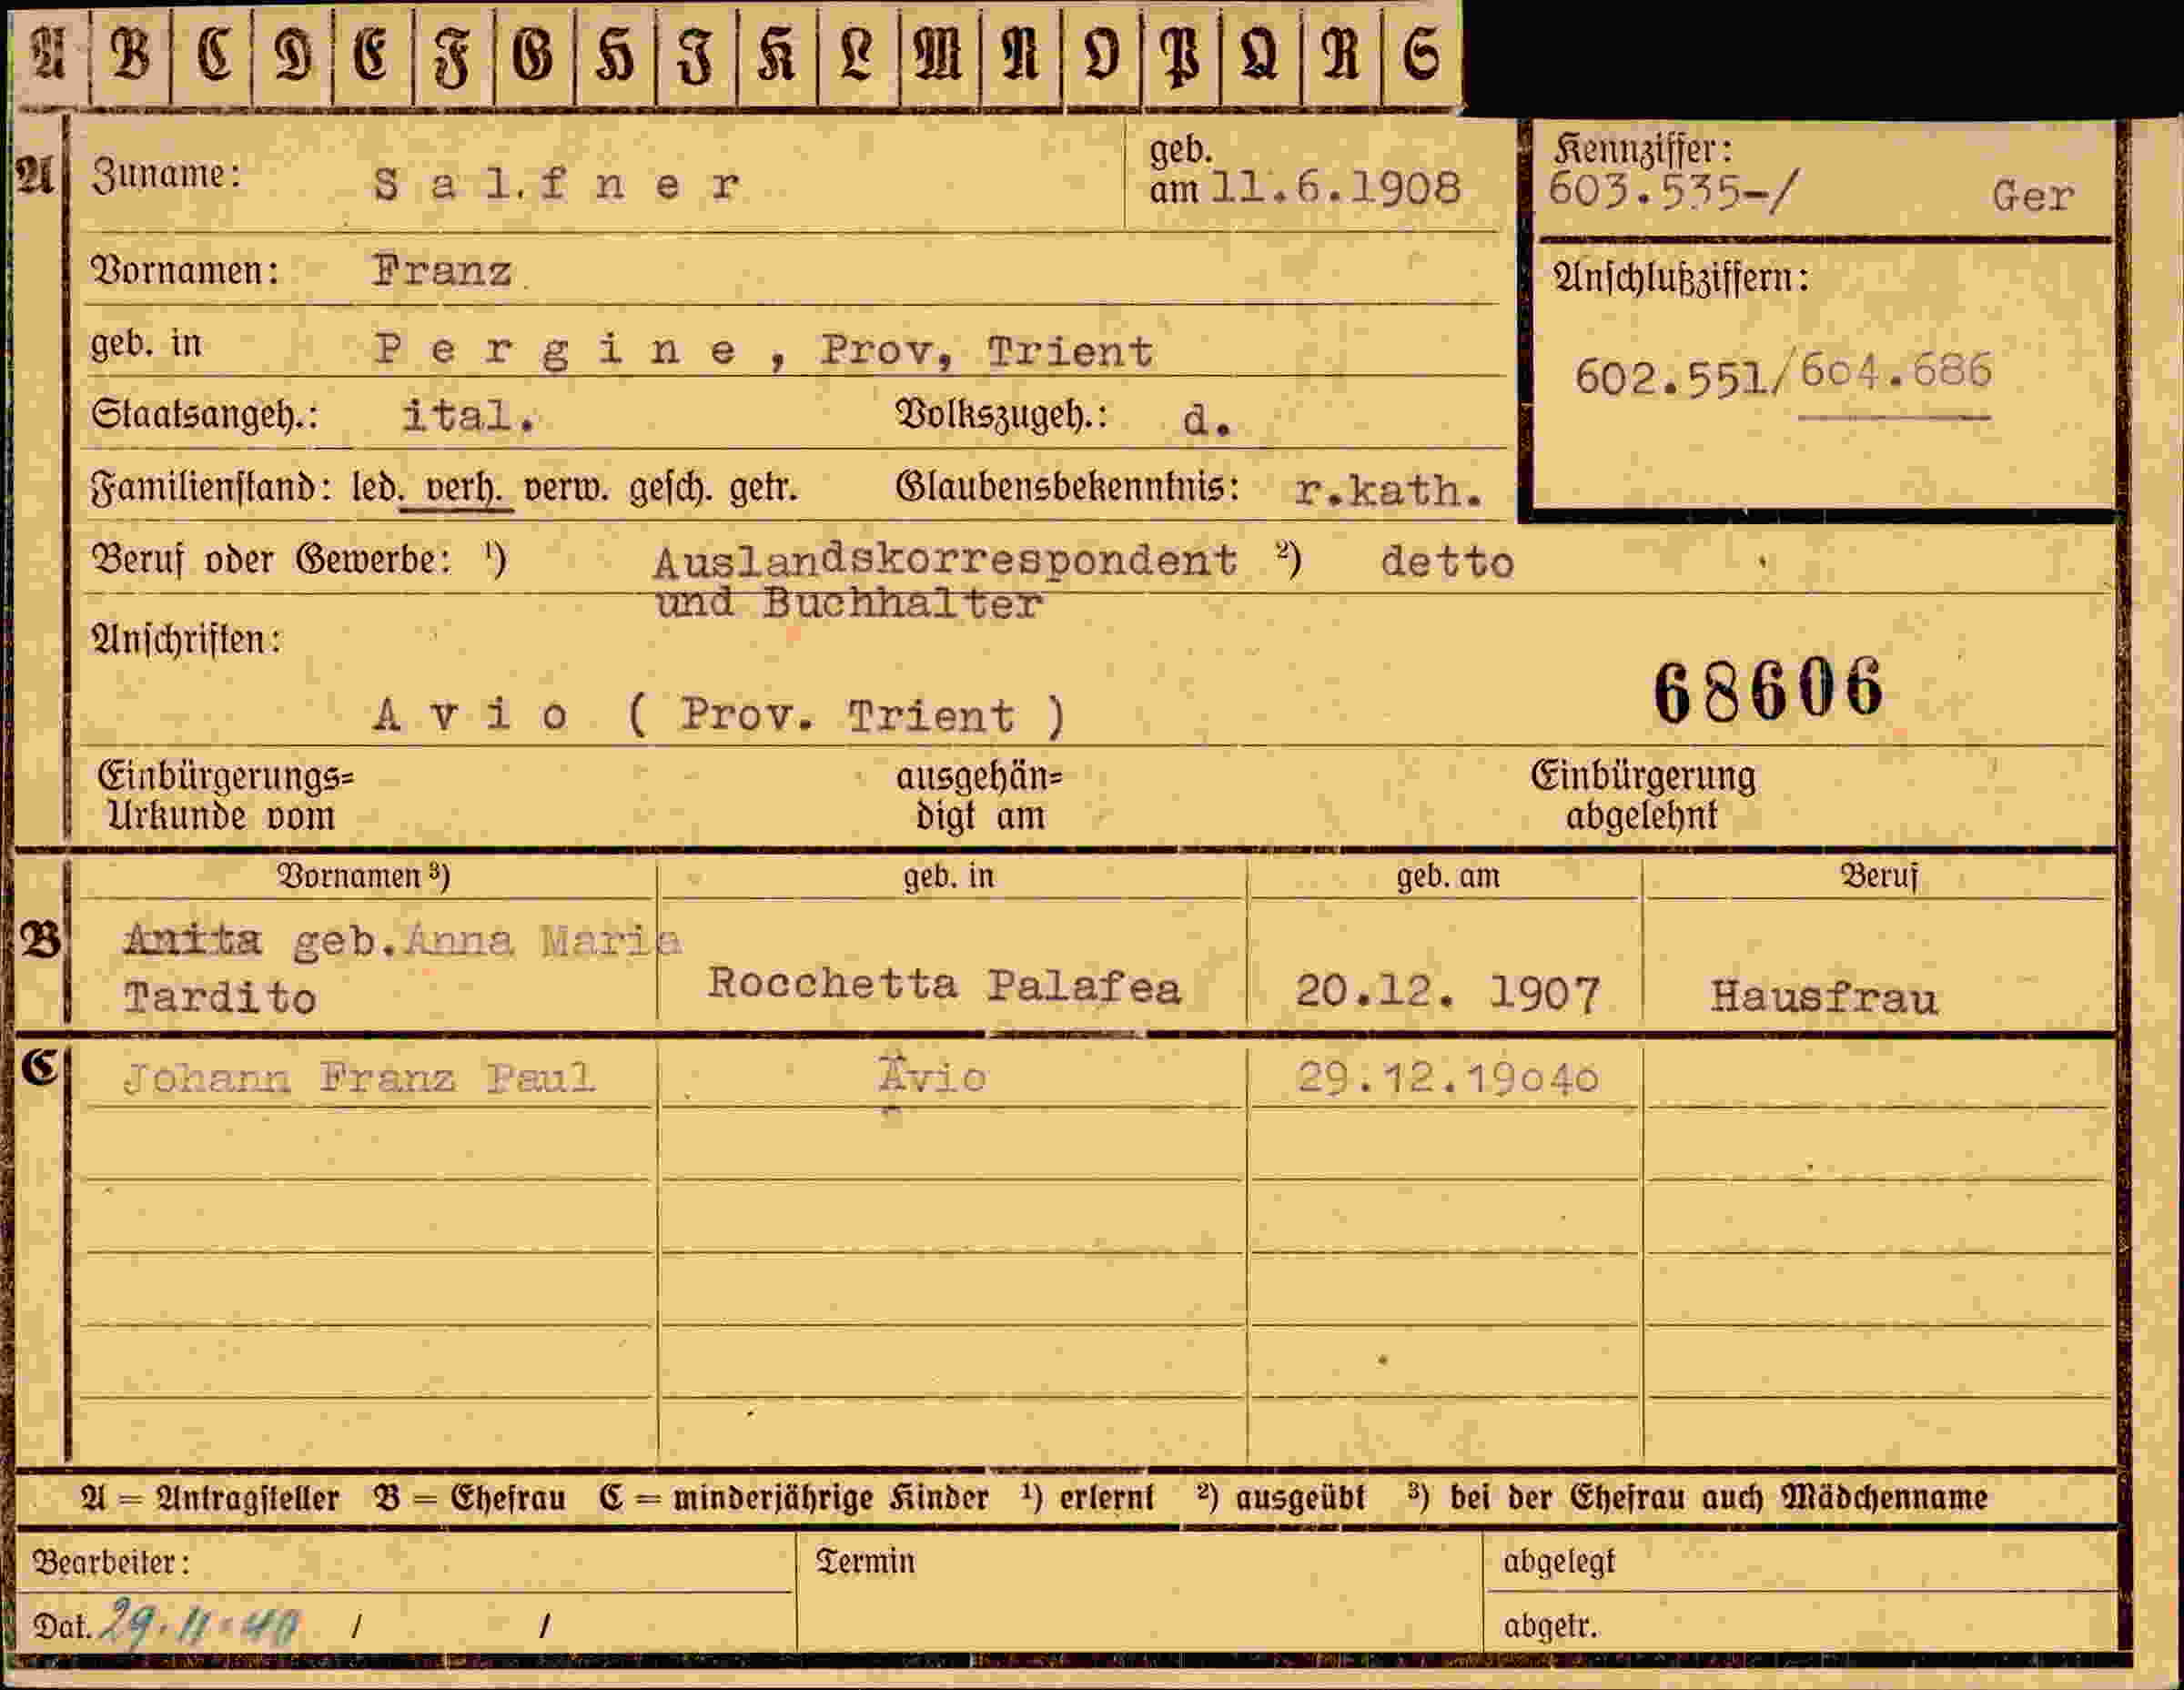 A B C D E F G H I K L M N O P Q R S
A Zuname: Sal.fner geb. am 11.6.1908 Kennziffer: 603.535-/ Ger
Vornamen: Franz
Anschlußziffern:
geb. in Pergine, Prov, Trient
602.551/604.686
Staatsangeh.: ital. Volkszugeh.: d.
Familienstand: led. verh. verw. gesch. getr. Glaubensbekenntnis: r.kath.
Beruf oder Gewerbe: ¹) Auslandskorrespondent ²) detto
und Buchhalter
Anschriften:
68606
Avio ( Prov. Trient )
Einbürgerungs= ausgehän= Einbürgerung
Urkunde vom digt am abgelehnt
Vornamen ³) geb. in geb. am Beruf
B Anita geb. Anna Maria
Tardito Rocchetta Palafea 20.12. 1907 Hausfrau
C Johann Franz Paul Avio 29.12.19040
A = Antragsteller B = Ehefrau C = minderjährige Kinder ¹) erlernt ²) ausgeübt ³) bei der Ehefrau auch Mädchenname
Bearbeiter: Termin abgelegt
Dat. 29.11.40 / / abgetr.